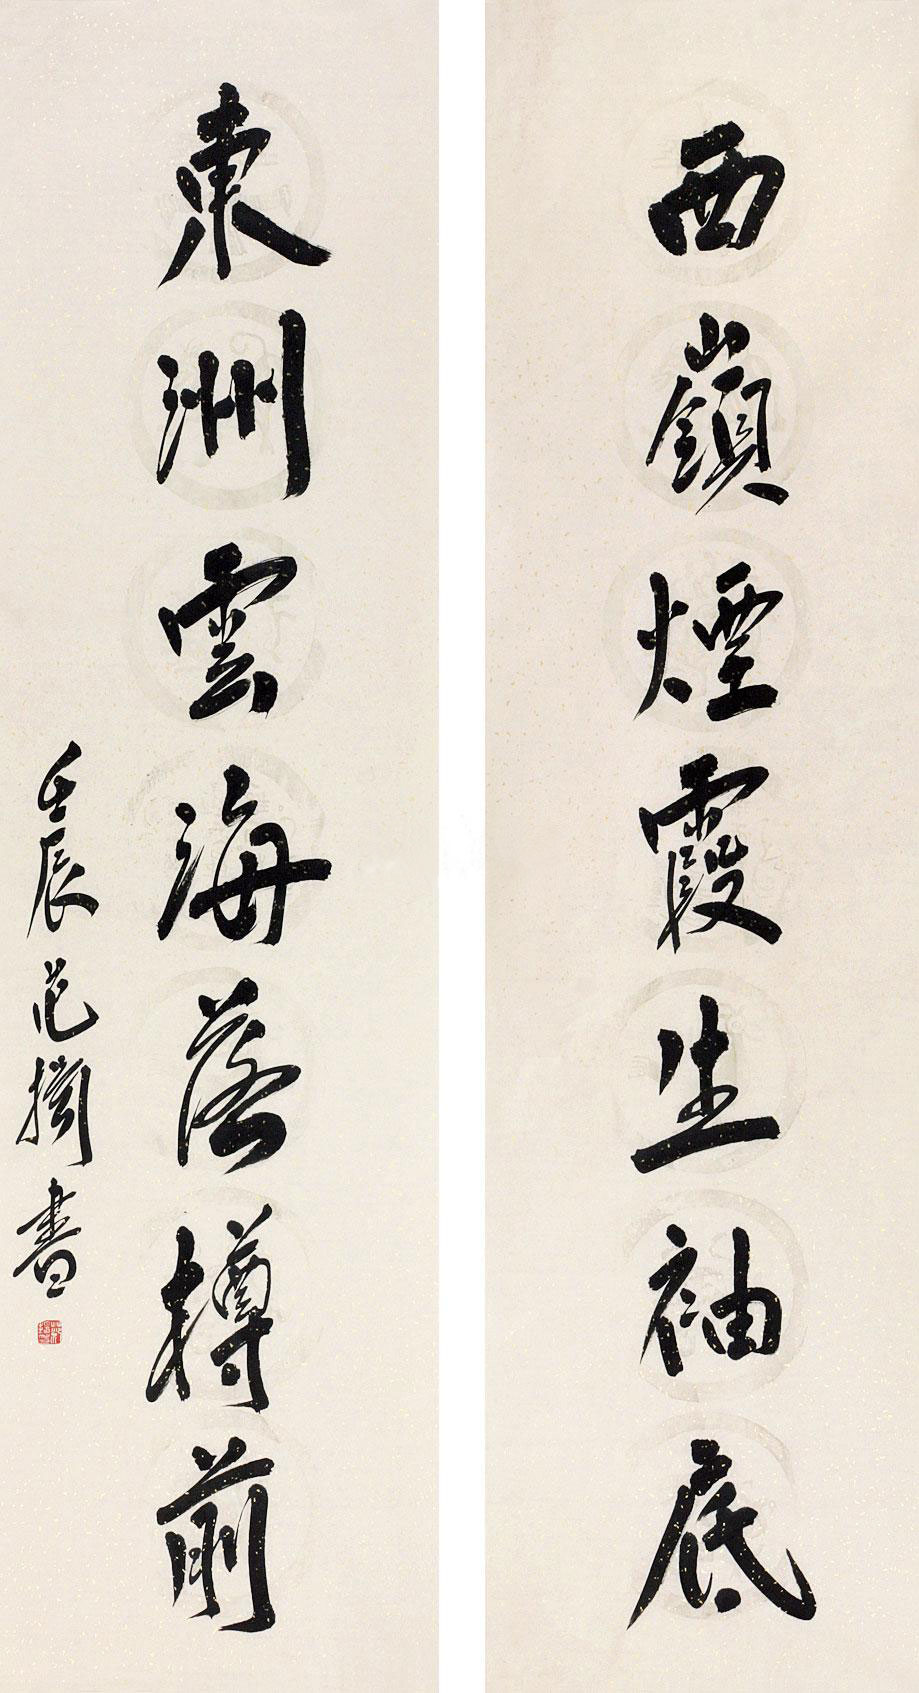 西嶺煙霞生袖底
東洲雲海落樽前
壬辰范擱書